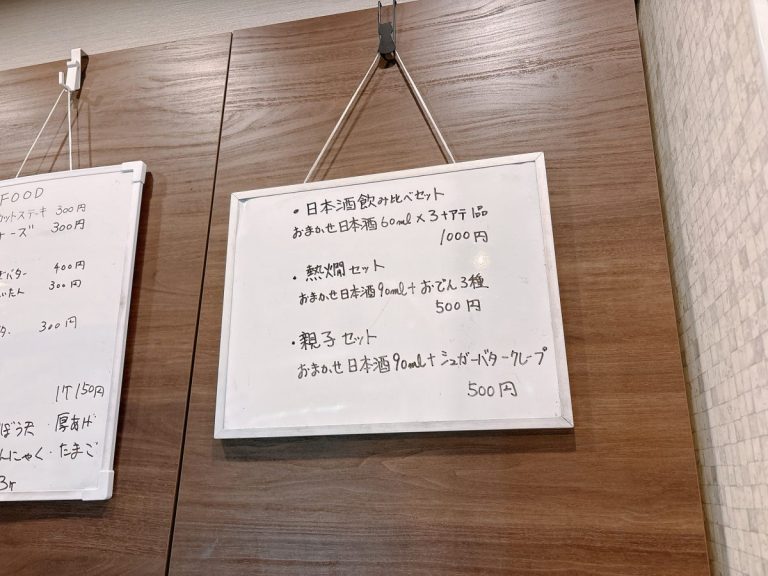 FOOD
カットステーキ 300円
ーズ 300円
バター 400円
300円
300円
1ケ 150円
ぼう天・厚あげ
んにゃく・たまご
3ヶ
・日本酒飲み比べセット
おまかせ日本酒60ml×3+アテ1品
1000円
・熱燗セット
おまかせ日本酒90ml+おでん3種
500円
・親子セット
おまかせ日本酒90ml+シュガーバタークレープ
500円